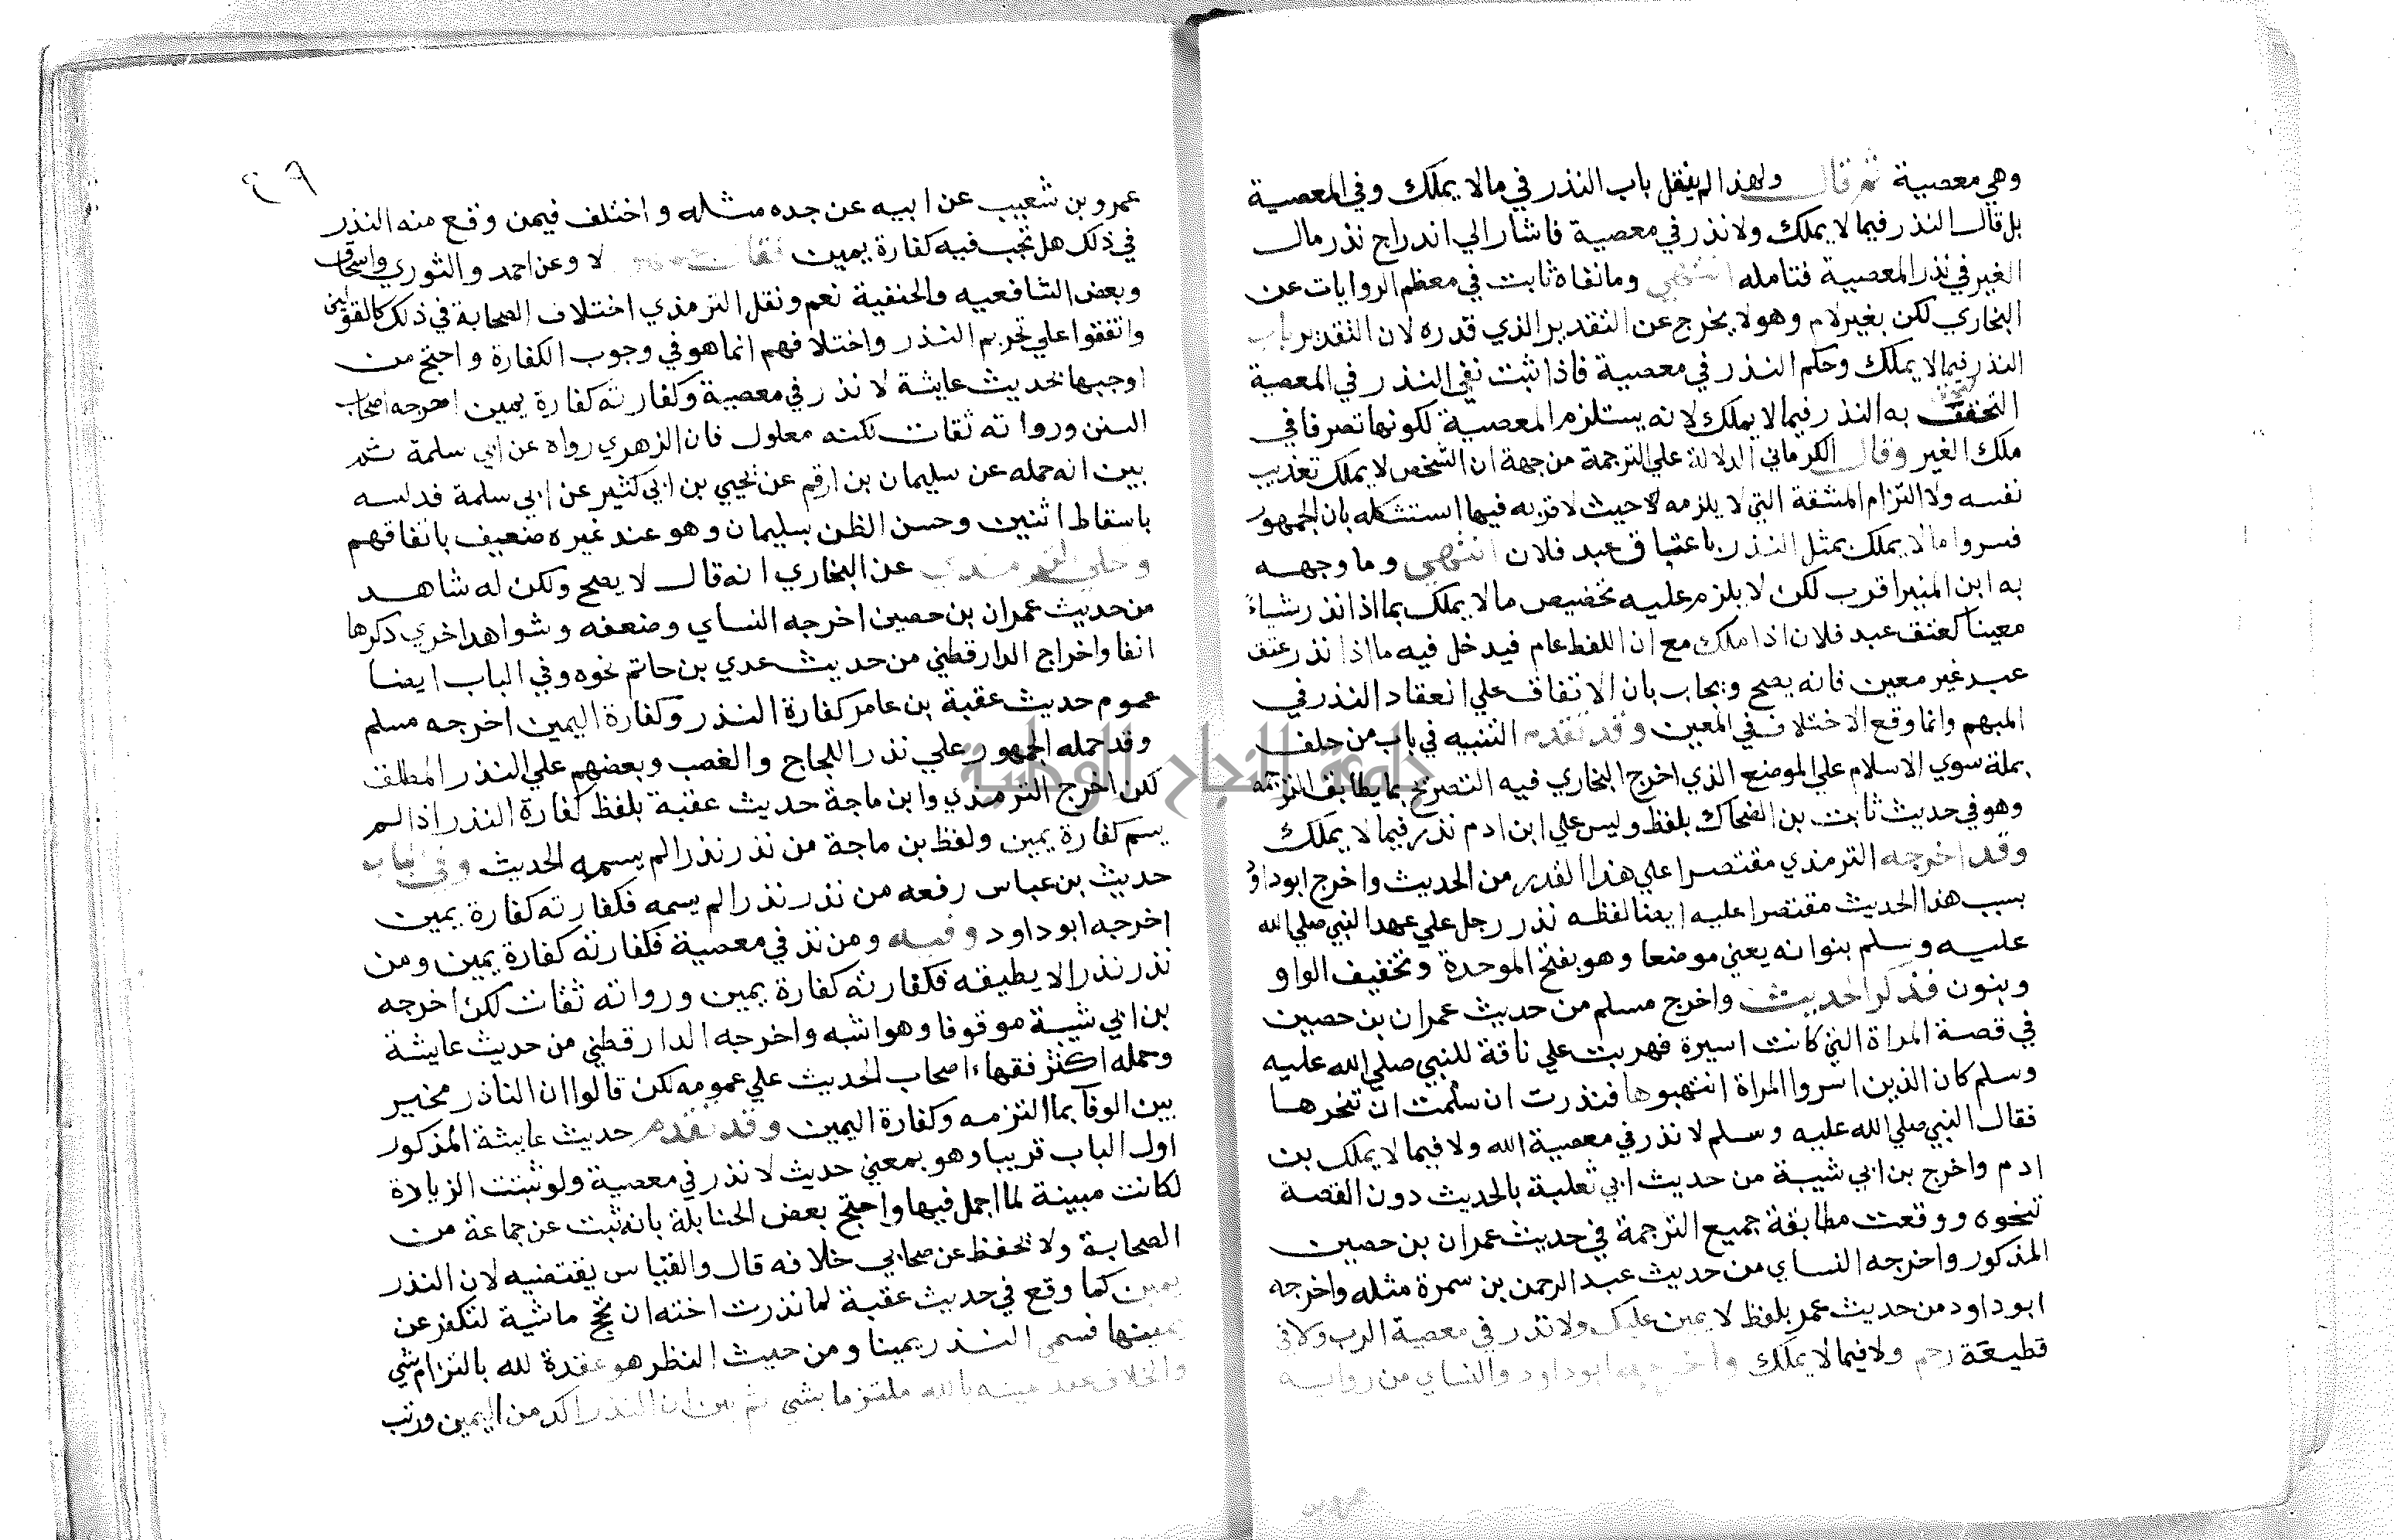 وهي معصية ثم قال ولهذا لم يقل باب النذر في ما لا يملك وفي المعصية
بل قال النذر فيما لا يملك ولا نذر في معصية فاشار الي اندراج نذر مال
الغير في نذر المعصية فتامله انتهي وما نفاه ثابت في معظم الروايات عن
البخاري لكن بغير لام وهو لا يخرج عن التقدير الذي قدره لان التقدير باب
النذر فيما لا يملك وحكم النذر في معصية فاذا ثبت نفي النذر في المعصية
التحقق به النذر فيما لا يملك لانه يستلزم المعصية لكونها تصرفا في
ملك الغير وقال الكرماني الدلالة علي الترجمة من جهة ان الشخص لا يملك تعذيب
نفسه ولا التزام المشقة التي لا يلزمه لا حيث لا قربه فيها استشكله بان الجمهور
فسروا ما لا يملك بمثل النذر باعتباق عبد فلان انتهي وما وجهه
به ابن المنير اقرب لكن لا يلزم عليه تخصيص ما لا يملك بما اذا نذر شياء
معينا كعتق عبد فلان اذا ملك مع ان اللفظ عام فيدخل فيه ما اذا نذر عتق
عبد غير معين فانه يصح ويجاب بان الاتفاق علي انعقاد النذر في
المبهم وانما وقع الاختلاف في المعين وقد تقدم التنبيه في باب من حلف
بملة سوي الاسلام علي الموضع الذي اخرج البخاري فيه التصريح بما يطابق الترجمة
وهو في حديث ثابت بن الضحاك بلفظ وليس علي ابن ادم نذر فيما لا يملك
وقد اخرجه الترمذي مقتصرا علي هذا القدر من الحديث واخرج ابو داود
بسبب هذا الحديث مقتصرا عليه ايضا لفظه نذر رجل علي عهد النبي صلي الله
عليه وسلم بنوانه يعني موضعا وهو بفتح الموحدة وتخفيف الواو
وبنون فذكر الحديث واخرج مسلم من حديث عمران بن حصين
في قصة المراة التي كانت اسيرة فهربت علي ناقة للنبي صلي الله عليه
وسلم كان الذين اسروا المراة انتهبوها فنذرت ان سلمت ان تنحرها
فقال النبي صلي الله عليه وسلم لا نذر في معصية الله ولا فيما لا يملك بن
ادم واخرج بن ابي شيبة من حديث ابي ثعلبة بالحديث دون القصة
تنحوه ووقعت مطابقة جميع الترجمة في حديث عمران بن حصين
المذكور واخرجه النساي من حديث عبد الرحمن بن سمرة مثله واخرجه
ابو داود من حديث عمر بلفظ لا يمين عليك ولا نذر في معصية الرب ولا في
قطيعة رحم ولا فيما لا يملك واخرجه ابو داود والنساي من رواية
عمرو بن
٤٦
عمرو بن شعيب عن ابيه عن جده مثله واختلف فيمن وقع منه النذر
في ذلك هل تجب فيه كفارة يمين فقال لا وعن احمد والثوري واسحاق
وبعض الشافعيه والحنفية نعم ونقل الترمذي اختلاف الصحابة في ذلك كالقولين
واتفقوا علي تحريم النذر واختلافهم انما هو في وجوب الكفارة واحتج من
اوجبها بحديث عايشة لا نذر في معصية وكفارته كفارة يمين اخرجه اصحاب
السنن ورواته ثقات لكنه معلول فان الزهري رواه عن ابي سلمة ثم
بين انه حمله عن سليمان بن ارقم عن يحيي بن ابي كثير عن ابي سلمة فدلسه
باسقاط اثنين وحسن الظن بسليمان وهو عند غيره ضعيف باتفاقهم
وحكي الترمذي عن البخاري انه قال لا يصح ولكن له شاهد
من حديث عمران بن حصين اخرجه النساي وضعفه وشواهد اخري ذكرها
انفا واخراج الدارقطني من حديث عدي بن حاتم نحوه وفي الباب ايضا
عموم حديث عقبة بن عامر كفارة النذر وكفارة اليمين اخرجه مسلم
وقد حمله الجمهور علي نذر اللجاج والغضب وبعضهم علي النذر المطلق
لكن اخرج الترمذي وابن ماجة حديث عقبة بلفظ كفارة النذر اذا لم
يسم كفارة يمين ولفظ بن ماجة من نذر نذرا لم يسمه الحديث وفي الباب
حديث بن عباس رفعه من نذر نذرا لم يسمه فكفارته كفارة يمين
اخرجه ابو داود وفيه ومن نذر في معصية فكفارته كفارة يمين ومن
نذر نذرا لا يطيقه فكفارته كفارة يمين ورواته ثقات لكن اخرجه
بن ابي شيبة موقوفا وهو اشبه واخرجه الدارقطني من حديث عايشة
وحمله اكثر فقهاء اصحاب الحديث علي عمومه لكن قالوا ان الناذر مخير
بين الوفآ بما التزمه وكفارة اليمين وقد تقدم حديث عايشة المذكور
اول الباب قريبا وهو بمعني حديث لا نذر في معصية ولو ثبتت الزيادة
لكانت مبينة لما اجمل فيها واحتج بعض الحنابلة بانه ثبت عن جماعة من
الصحابة ولا يحفظ عن صحابي خلافه قال والقياس يقتضيه لان النذر
يمين كما وقع في حديث عقبة لما نذرت اخته ان تحج ماشية لتكفر عن
يمينها فسمي النذر يمينا ومن حيث النظر هو عقدة لله بالتزام شي
والخلاف عقد يمينه بالله ملتزما بشي ثم بين ان النذر اكد من اليمين ورتب
جامعة النجاح الوطنية